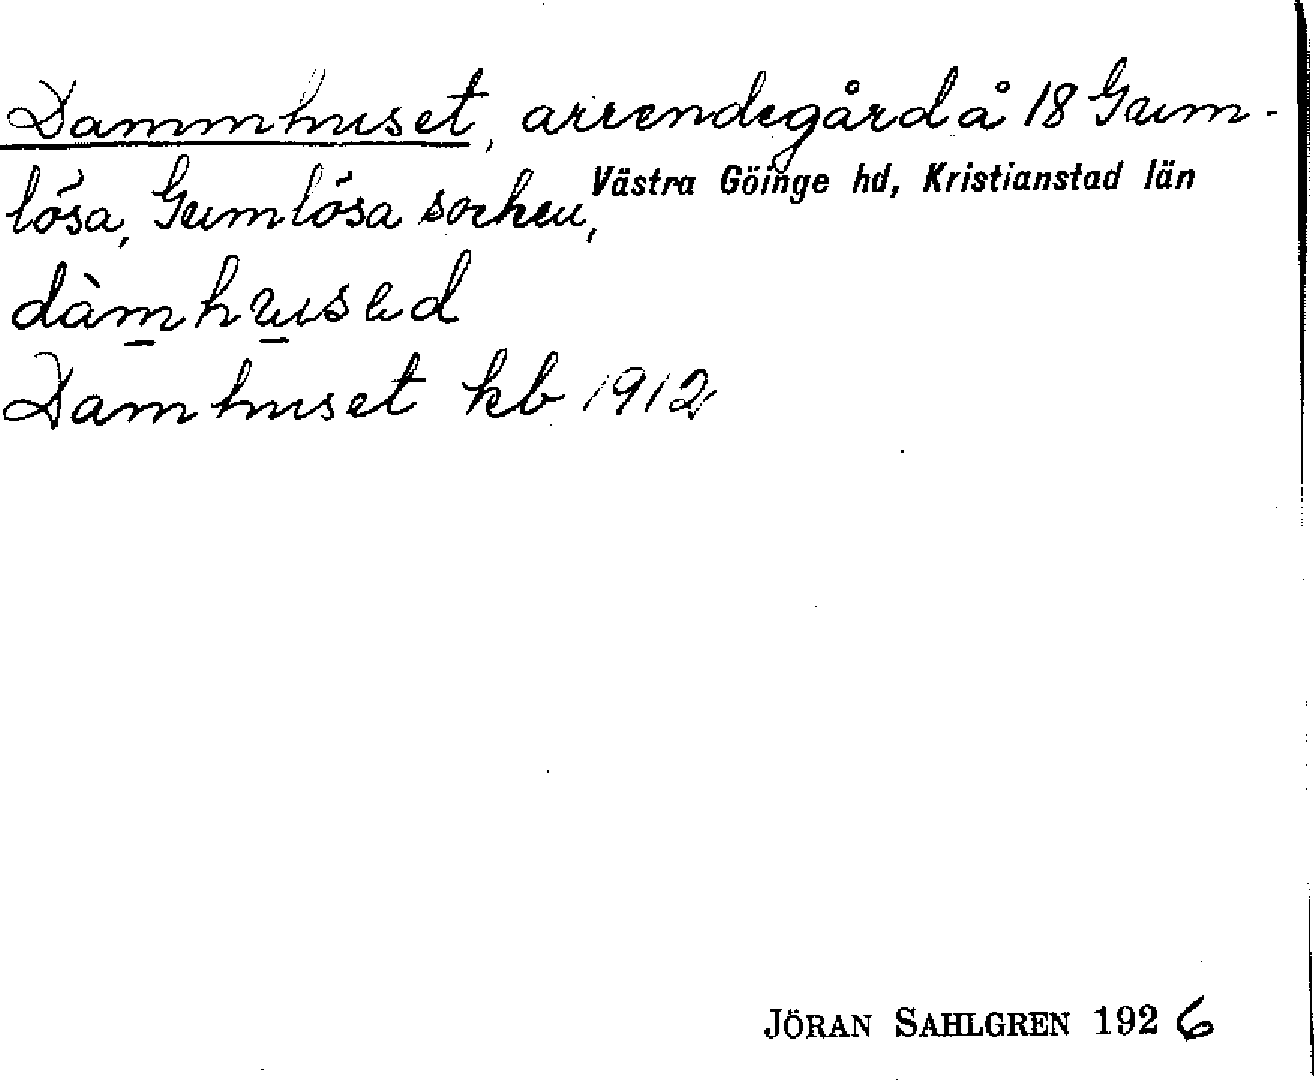 Dammhuset, arrendegård å 18 Gum-
lösa, Gumlösa socken, Västra Göinge hd, Kristianstad län
dàmhused
Damhuset kb 1912
JÖRAN SAHLGREN 1926